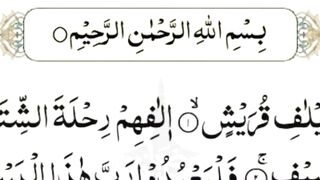 بِسْمِ اللهِ الرَّحْمٰنِ الرَّحِيْمِ
يْلٰفِ قُرَيْشٍ ۙ﴿۱﴾ اٖلٰفِهِمْ رِحْلَةَ الشِّتَا
﴿۲﴾ فَلْيَعْبُدُوْا رَبَّ هٰذَا الْبَيْ